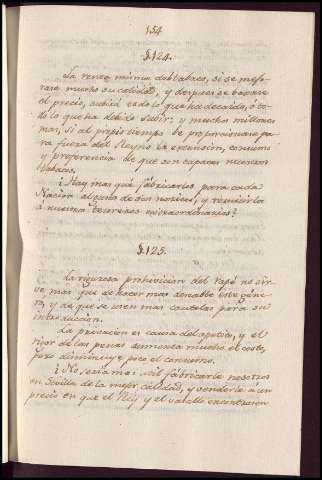 154
§.124.
La renta misma del tabaco, si se mejo-
rase mucho su calidad, y despues se baxase
el precio, subirá todo lo que ha decaido, ó to-
do lo que ha debido subir: y muchos millones
mas, si al propio tiempo se proporcionase pa-
ra fuera del Reyno la extension, consumo
y preferencia de que son capaces nuestros
tabacos.
¿Hay mas que fabricarlos para cada
Nacion al gusto de sus narices, y reducirlo
á nuestra tesoreria extraordinarios?
§.125.
La rigurosa prohivicion del rapé no sir-
ve mas que de hacer mas deseable este géne-
ro, y de que se usen mas cautelas para su
introduccion.
La privacion es causa del apetito, y el
rigor de las penas aumenta mucho el coste,
pero diminuye poco el consumo.
¿No seria mas util fabricarle nosotros
en Sevilla de la mejor calidad, y venderle á un
precio en que el Rey y el vasallo encontrasen